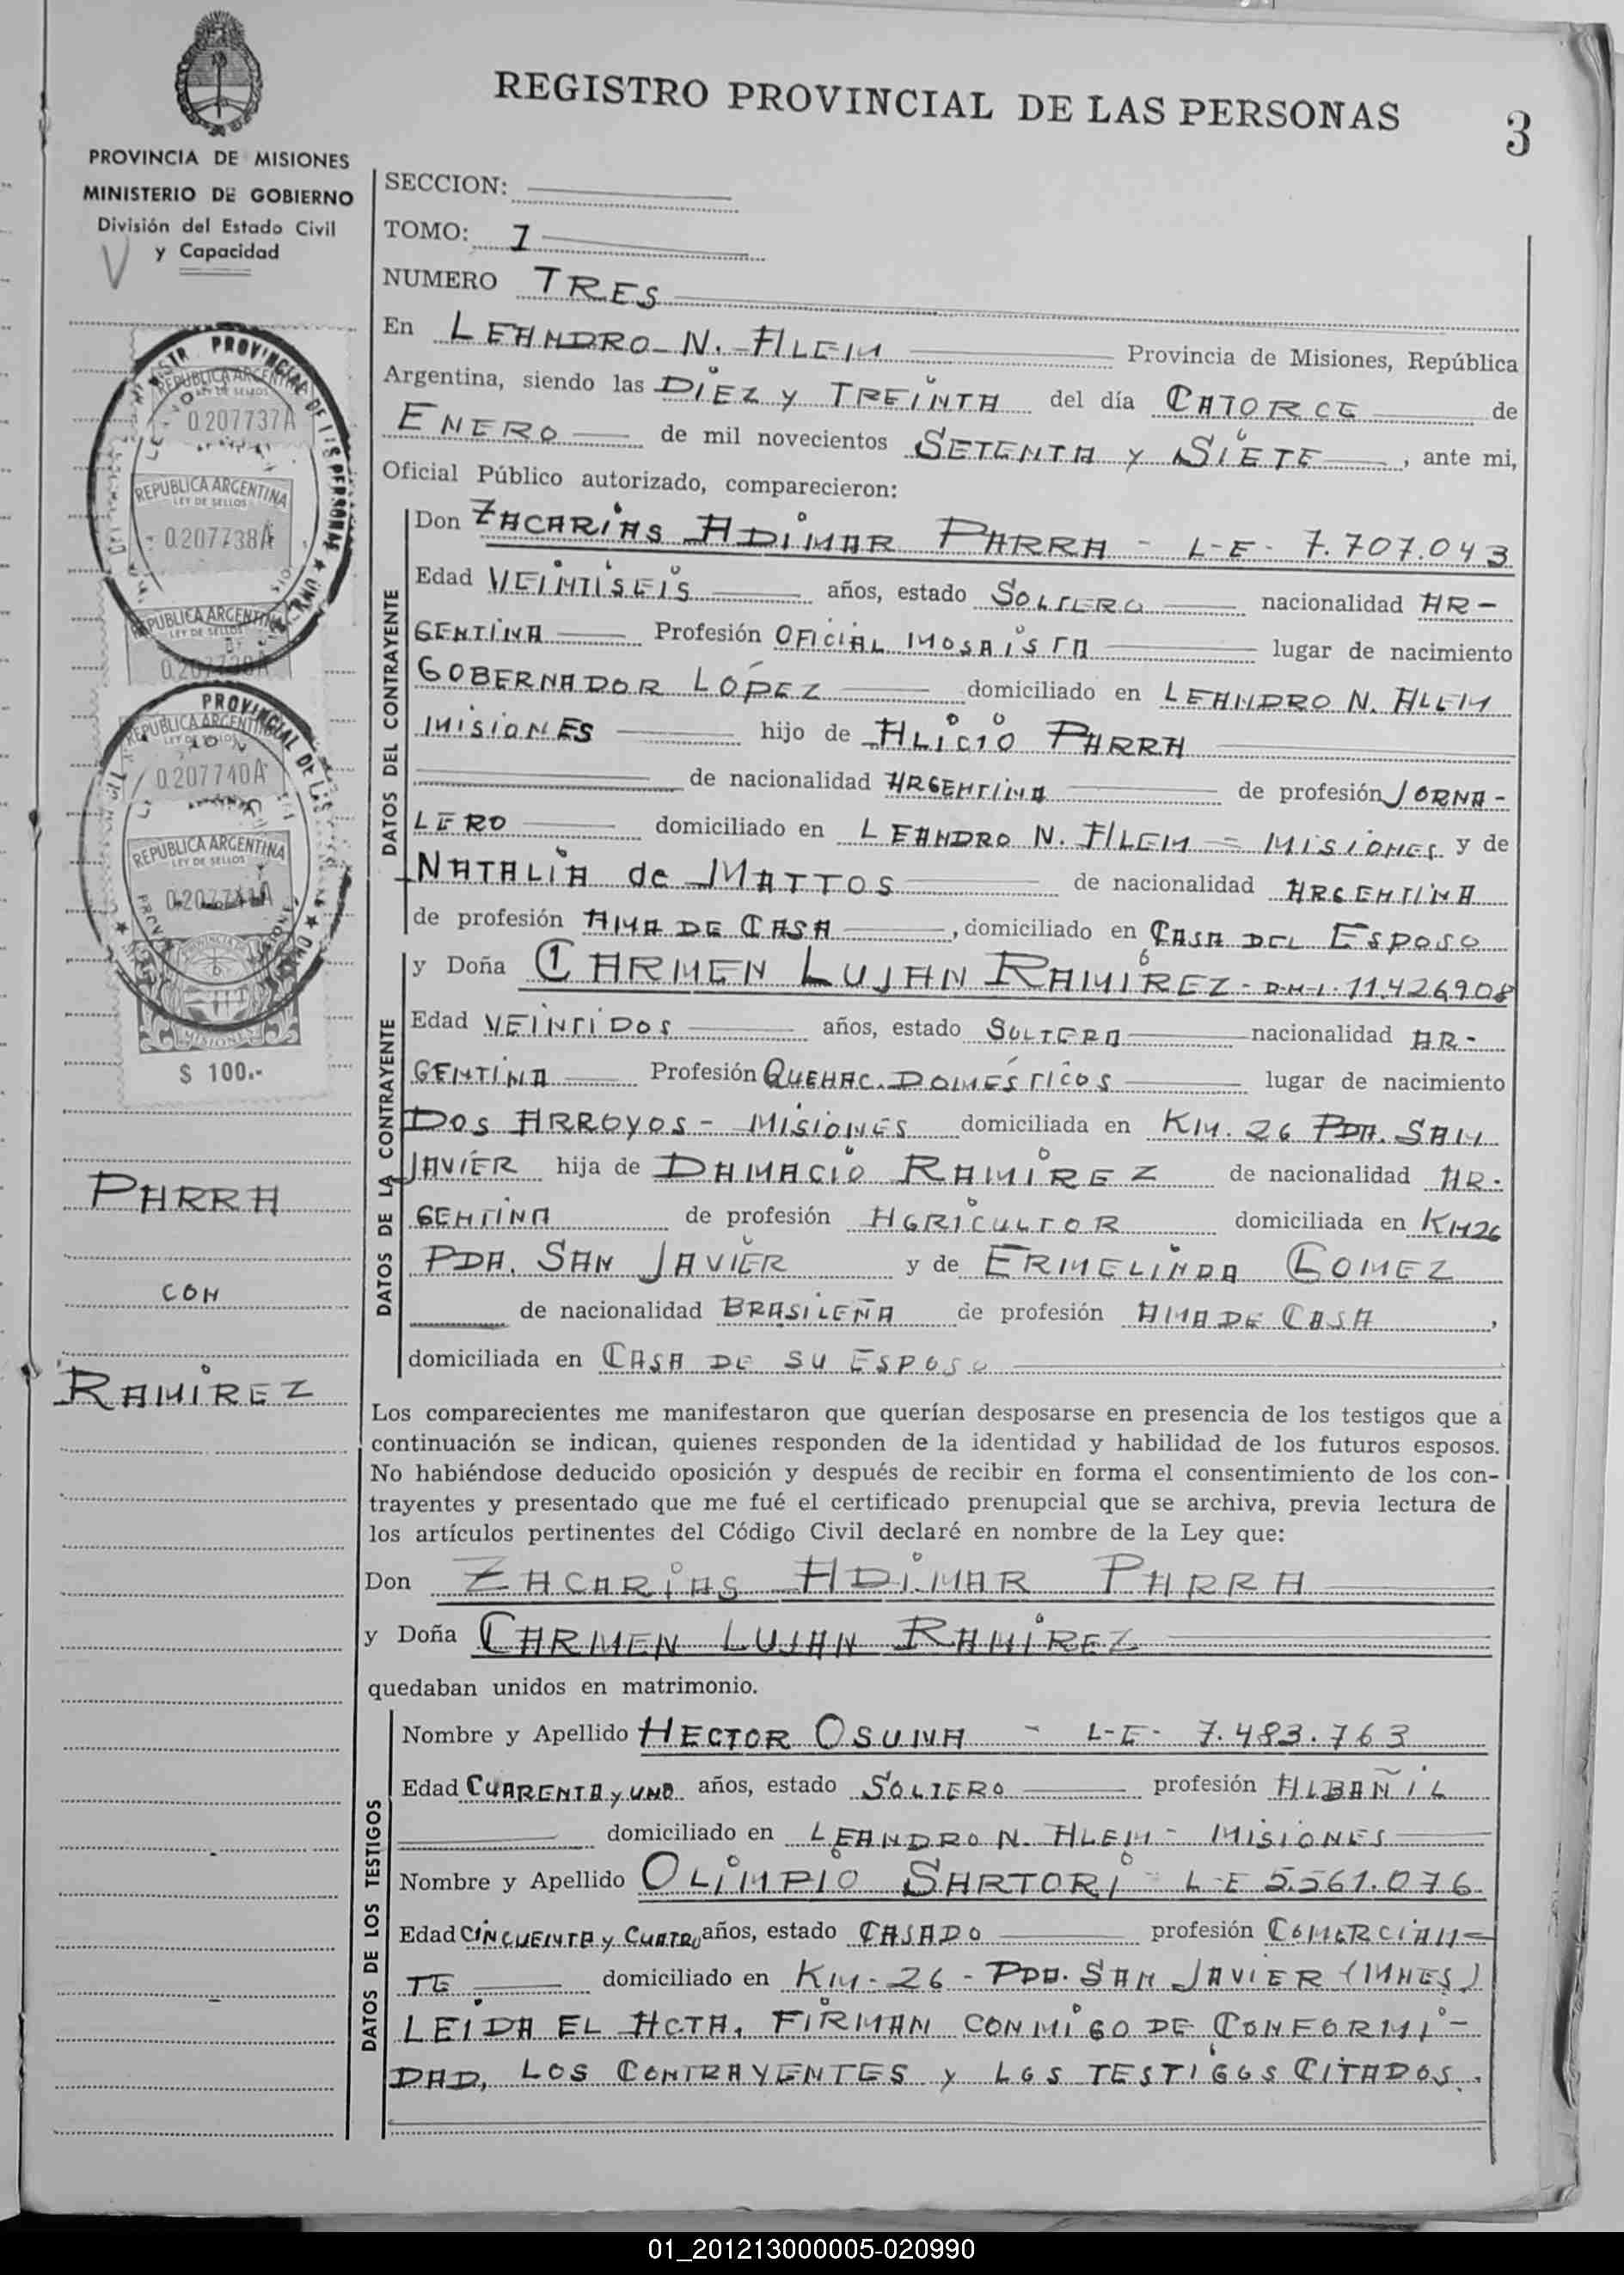 REGISTRO PROVINCIAL DE LAS PERSONAS
3
PROVINCIA DE MISIONES
MINISTERIO DE GOBIERNO
División del Estado Civil
y Capacidad
SECCION:
TOMO: 1
NUMERO TRES
En LEANDRO N. ALEM Provincia de Misiones, República
Argentina, siendo las DIEZ y TREINTA del día CATORCE de
ENERO de mil novecientos SETENTA y SIETE, ante mi,
Oficial Público autorizado, comparecieron:
DATOS DEL CONTRAYENTE
Don ZACARIAS ADIMAR PARRA - L-E- 7.707.043
Edad VEINTISEIS años, estado SOLTERO nacionalidad AR-
GENTINA Profesión OFICIAL MOSAISTA lugar de nacimiento
GOBERNADOR LÓPEZ domiciliado en LEANDRO N. ALEM
MISIONES hijo de ALICIO PARRA
de nacionalidad ARGENTINA de profesión JORNA-
LERO domiciliado en LEANDRO N. ALEM - MISIONES y de
NATALIA de MATTOS de nacionalidad ARGENTINA
de profesión AMA DE CASA, domiciliado en CASA DEL ESPOSO
DATOS DE LA CONTRAYENTE
y Doña CARMEN LUJAN RAMIREZ - D.N.I. 11.426.908
Edad VEINTIDOS años, estado SOLTERA nacionalidad AR-
GENTINA Profesión QUEHAC. DOMÉSTICOS lugar de nacimiento
DOS ARROYOS - MISIONES domiciliada en KM. 26 PDA. SAN
JAVIER hija de DAMACIO RAMIREZ de nacionalidad AR-
GENTINA de profesión AGRICULTOR domiciliada en KM26
PDA. SAN JAVIER y de ERMELINDA GOMEZ
de nacionalidad BRASILEÑA de profesión AMA DE CASA,
domiciliada en CASA DE SU ESPOSO
Los comparecientes me manifestaron que querían desposarse en presencia de los testigos que a
continuación se indican, quienes responden de la identidad y habilidad de los futuros esposos.
No habiéndose deducido oposición y después de recibir en forma el consentimiento de los con-
trayentes y presentado que me fué el certificado prenupcial que se archiva, previa lectura de
los artículos pertinentes del Código Civil declaré en nombre de la Ley que:
Don ZACARIAS ADIMAR PARRA
y Doña CARMEN LUJAN RAMIREZ
quedaban unidos en matrimonio.
DATOS DE LOS TESTIGOS
Nombre y Apellido HECTOR OSUNA - L-E- 7.483.763
Edad CUARENTA y UNO años, estado SOLTERO profesión ALBAÑIL
domiciliado en LEANDRO N. ALEM - MISIONES
Nombre y Apellido OLIMPIO SARTORI - L-E 5.561.076
Edad CINCUENTA y CUATRO años, estado CASADO profesión COMERCIAN-
TE domiciliado en KM-26 - PDA. SAN JAVIER (MNES)
LEIDA EL ACTA, FIRMAN CONMIGO DE CONFORMI-
DAD, LOS CONTRAYENTES y LOS TESTIGOS CITADOS.
PROVINCIAL DE LAS PERSONAS
REPUBLICA ARGENTINA
LEY DE SELLOS
0.207737A
REPUBLICA ARGENTINA
LEY DE SELLOS
0.207738A
REPUBLICA ARGENTINA
LEY DE SELLOS
PROVINCIAL DE LAS
REPUBLICA ARGENTINA
0.207740A
REPUBLICA ARGENTINA
LEY DE SELLOS
MISIONES
$ 100.-
PARRA
CON
RAMIREZ
01_201213000005-020990